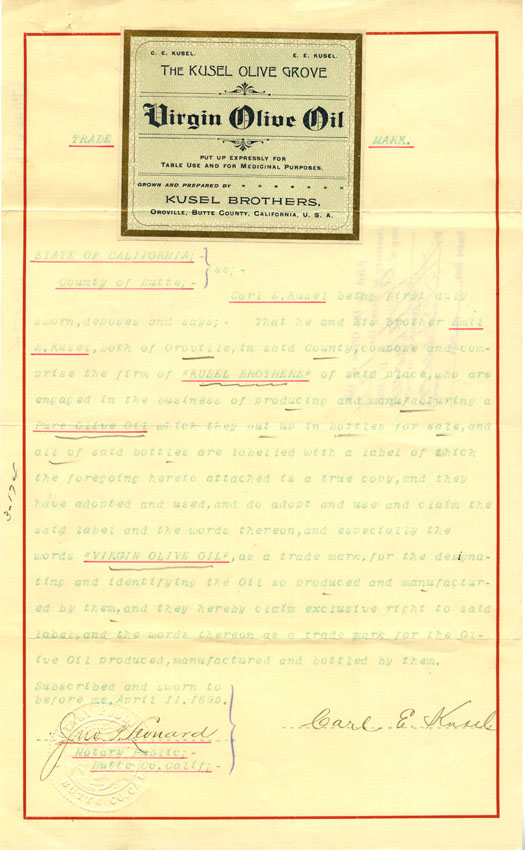 C. E. KUSEL. E. E. KUSEL.
THE KUSEL OLIVE GROVE
Virgin Olive Oil
PUT UP EXPRESSLY FOR
TABLE USE AND FOR MEDICINAL PURPOSES.
GROWN AND PREPARED BY
KUSEL BROTHERS,
OROVILLE, BUTTE COUNTY, CALIFORNIA, U. S. A.
TRADE MARK.
STATE OF CALIFORNIA;-
ss;-
County of Butte;-
Carl E.Kusel being first duly
sworn,deposes and says;- That he and his brother Emil
E.Kusel,both of Oroville,in said County,compose and com-
prise the firm of "KUSEL BROTHERS" of said place,who are
engaged in the business of producing and manufacturing a
Pure Olive Oil which they put up in bottles for sale,and
all of said bottles are labelled with a label of which
the foregoing hereto attached is a true copy,and they
have adopted and used,and do adopt and use and claim the
said label and the words thereon,and especially the
words "VIRGIN OLIVE OIL",as a trade mark,for the designa-
ting and identifying the Oil so produced and manufactur-
ed by them,and they hereby claim exclusive right to said
label,and the words thereon as a trade mark for the Ol-
ive Oil produced,manufactured and bottled by them.
Subscribed and sworn to
before me,April 11,1895.
Carl E. Kusel
Leonard
Notary Public;-
Butte Co.Calif;-
BUTTE CO. CAL